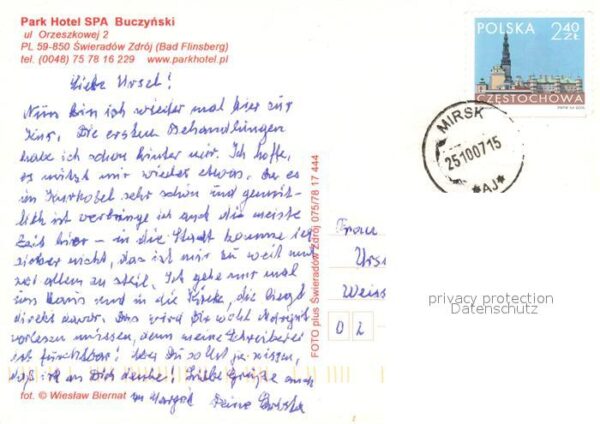 Park Hotel SPA Buczyński
ul Orzeszkowej 2
PL 59-850 Świeradów Zdrój (Bad Flinsberg)
tel. (0048) 75 78 16 229 www.parkhotel.pl
Liebe Ursel!
Nun bin ich wieder mal hier zur
Kur. Die ersten Behandlungen
habe ich schon hinter mir. Ich hoffe,
es nützt mir wieder etwas. Da es
im Kurhotel sehr schön und gemüt-
lich ist verbringe ich auch die meiste
Zeit hier – in die Stadt komme ich
sicher nicht, das ist mir zu weit und
vor allem zu steil. Ich gehe nur mal
ums Haus und in die Kirche, die liegt
direkt davor. Das wird Dir wohl
vorlesen müssen, denn meine Schreiberei
ist furchtbar! Aber Du sollst ja wissen,
daß ich an Dich denke! Liebe Grüße auch
an Margot Deine
fot. © Wiesław Biernat
FOTO plus Świeradów Zdrój 075/78 17 444
POLSKA 2,40 ZŁ
CZĘSTOCHOWA
MIRSK
25100715
*AJ*
Frau
Urs
Weiss
0 2
privacy protection
Datenschutz